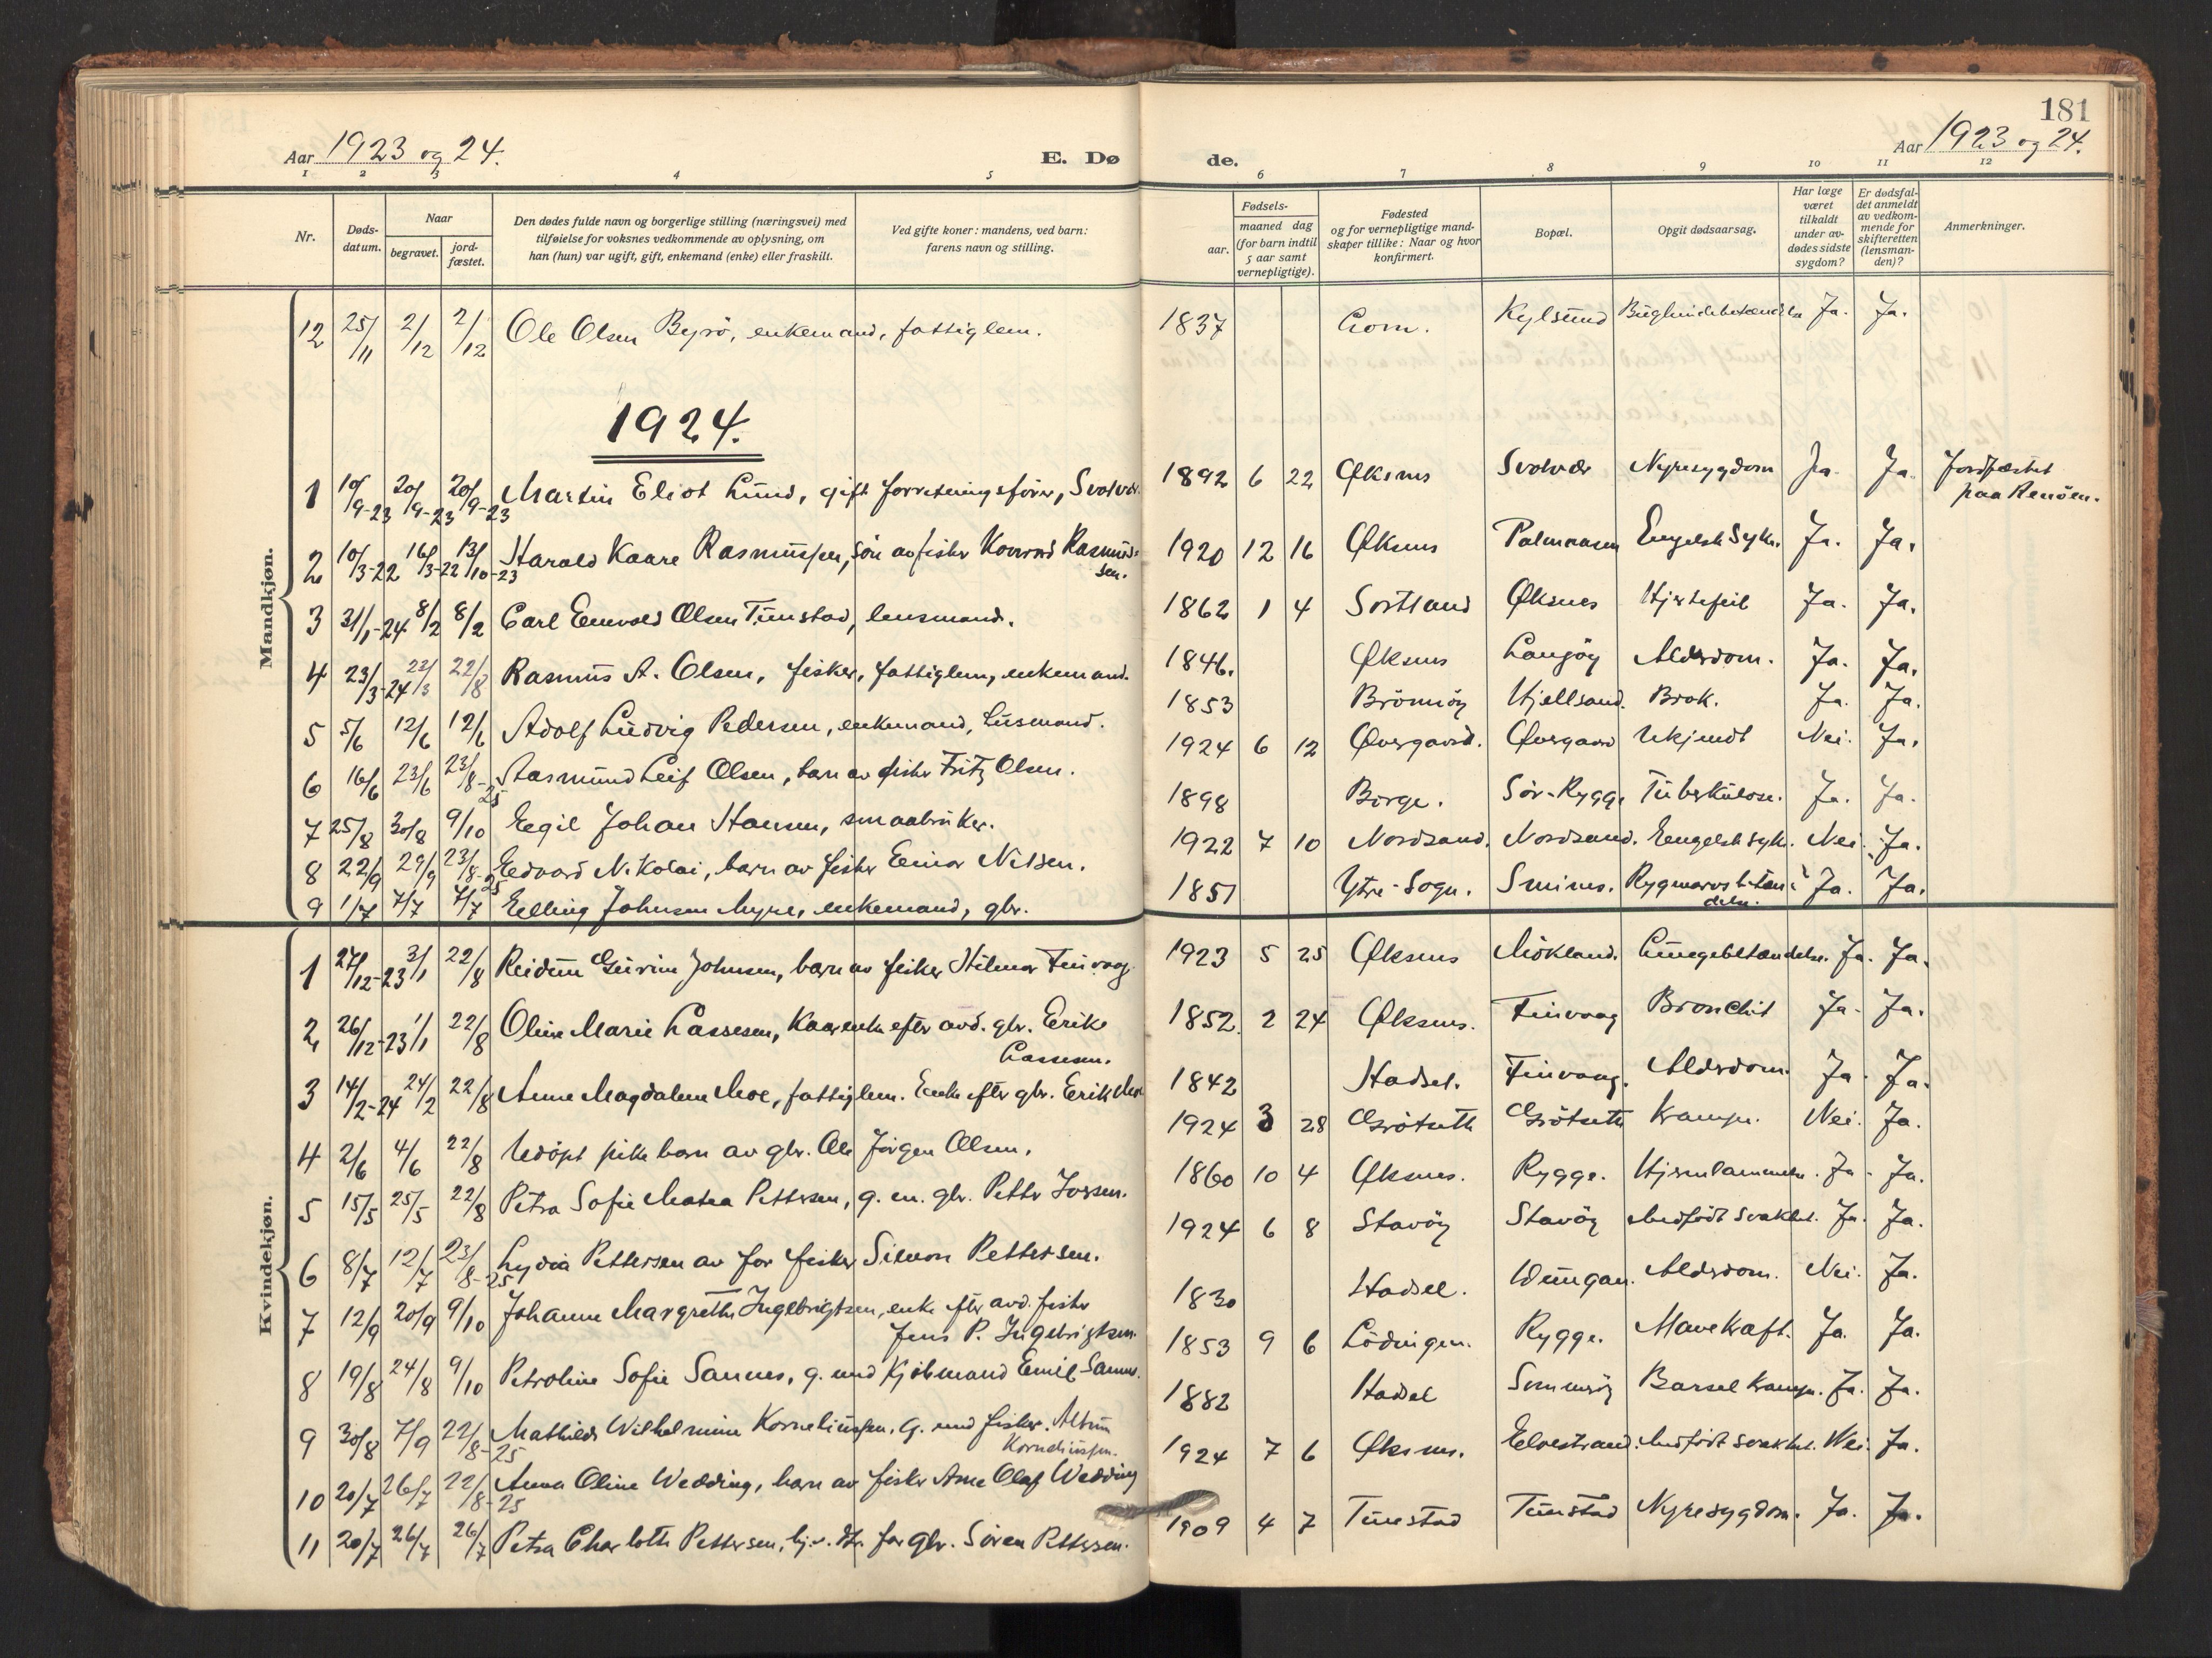 181
Aar 1923 og 24. E. Dø de. Aar 1923 og 24.
1 2 3 4 5 6 7 8 9 10 11 12
Nr. Døds-datum. Naar begravet. jord-fæstet. Den dødes fulde navn og borgerlige stilling (næringsvei) med tilføielse for voksnes vedkommende av oplysning, om han (hun) var ugift, gift, enkemand (enke) eller fraskilt. Ved gifte koner: mandens, ved barn: farens navn og stilling. Fødsels- aar. maaned dag (for barn indtil 5 aar samt vernepligtige). Fødested og for vernepligtige mandskaper tillike: Naar og hvor konfirmert. Bopæl. Opgit dødsaarsag. Har læge været tilkaldt under avdødes sidste sygdom? Er dødsfaldet anmeldt av vedkommende for skifteretten (lensmanden)? Anmerkninger.
Mandkjøn.
12 25/11 2/12 2/12 Ole Olsen Byrö, enkemand, fattiglem. 1837 Kylsund Ja. Ja.
1924.
1 10/9-23 20/9-23 20/9-23 Martin Eliot Lund, gift forretningsförer, Svolvær 1892 6 22 Øksnes Svolvær Nyresygdom Ja. Ja. Jordfæstet paa Renöen.
2 10/3-22 16/3-22 13/10-23 Harald Kaare Rasmussen, sön av fisker Konrad Rasmussen. 1920 12 16 Øksnes Engelsk Syke. Ja. Ja.
3 31/1-24 8/2 8/2 Carl Enevold Olsen Tunstad, lensmand. 1862 1 4 Sortland Øksnes Hjertefeil Ja. Ja.
4 23/3-24 22/3 22/8 Rasmus A. Olsen, fisker, fattiglem, enkemand. 1846. Øksnes Langöy Alderdom. Ja. Ja.
5 5/6 12/6 12/6 Adolf Ludvig Pedersen, enkemand, Husmand. 1853 Brönnöy Hjellsand. Brok. Ja. Ja.
6 16/6 23/6 23/8-25 Aasmund Leif Olsen, barn av fisker Fritz Olsen. 1924 6 12 Øvergaard. Øvergaard Ukjendt Nei. Ja.
7 25/8 30/8 9/10 Egil Johan Hansen, smaabruker. 1898 Borge. Sör-Rygge Tuberkulose. Ja. Ja.
8 22/9 29/9 23/8-25 Edvard Nikolai, barn av fisker Einar Nilsen. 1922 7 10 Nordsand. Nordsand. Engelsk syk. Nei. Ja.
9 1/7 7/7 7/7 Elling Johnsen Myre, enkemand, gbr. 1851 Ytre-Sogn. Smines. Rygmarvsbetændelse. Ja. Ja.
Kvindekjøn.
1 27/12-23 3/1 22/8 Reidun Guvine Johnsen, barn av fisker Hilmar Finvaag. 1923 5 25 Øksnes Mökland. Lungebetændelse. Ja. Ja.
2 26/12-23 1/1 22/8 Oline Marie Lassesen, Kaarenke efter avd. gbr. Erik Lassesen. 1852. 2 24 Øksnes. Finvaag Bronchit Ja. Ja.
3 14/2-24 24/2 22/8 Anne Magdalena Moe, fattiglem. Enke efter gbr. Erik Moe 1842 Hadsel. Finvaag. Alderdom. Ja. Ja.
4 2/6 4/6 22/8 Udöpt pikebarn av gbr. Ole Jörgen Olsen. 1924 3 28 Grötsæth Grötsæth Krampe. Nei. Ja.
5 15/5 25/5 22/8 Petra Sofie Matea Pettersen, g. m. gbr. Petter 1860 10 4 Øksnes. Rygge. Ja. Ja.
6 8/7 12/7 23/8-25 Lydia Pettersen av for fisker Simon Pettersen. 1924 6 8 Stavöy Stavöy Medfödt svakhet. Ja. Ja.
7 12/9 20/9 9/10 Johanna Margrethe Ingebrigtsen, enke efter avd. fisker Jens P. Ingebrigtsen. 1830 Hadsel. Alderdom. Nei. Ja.
8 19/8 24/8 9/10 Petroline Sofie Sannes, g. med Kjöbmand Emil Sannes. 1853 9 6 Lödingen. Rygge. Mavekræft. Ja. Ja.
9 30/8 7/9 22/8-25 Mathilde Wilhelmine Korneliussen, g. med fisker. Korneliussen. 1882 Hadsel Sommeröy Barselkrampe. Ja. Ja.
10 20/7 26/7 22/8-25 Anna Oline Wedding, barn av fisker Arne Olaf Wedding 1924 7 6 Øksnes. Elvestrand. Medfödt svakhet. Nei. Ja.
11 20/7 26/7 26/7 Petra Charlotte Pettersen, hj.v. dtr. far gbr. Sören Pettersen. 1909 4 7 Tunstad Tunstad Nyresygdom. Ja. Ja.